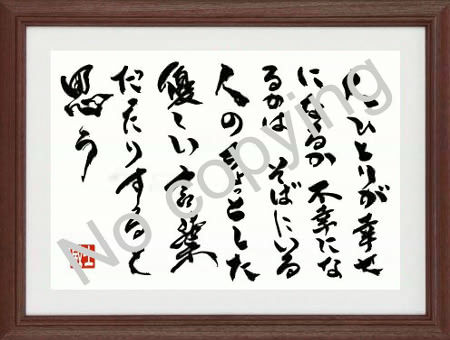 ひとりが幸せ
になるか 不幸にな
るかは そばにいる
人のちょっとした
優しい言葉
だったりすると
思う
No copying